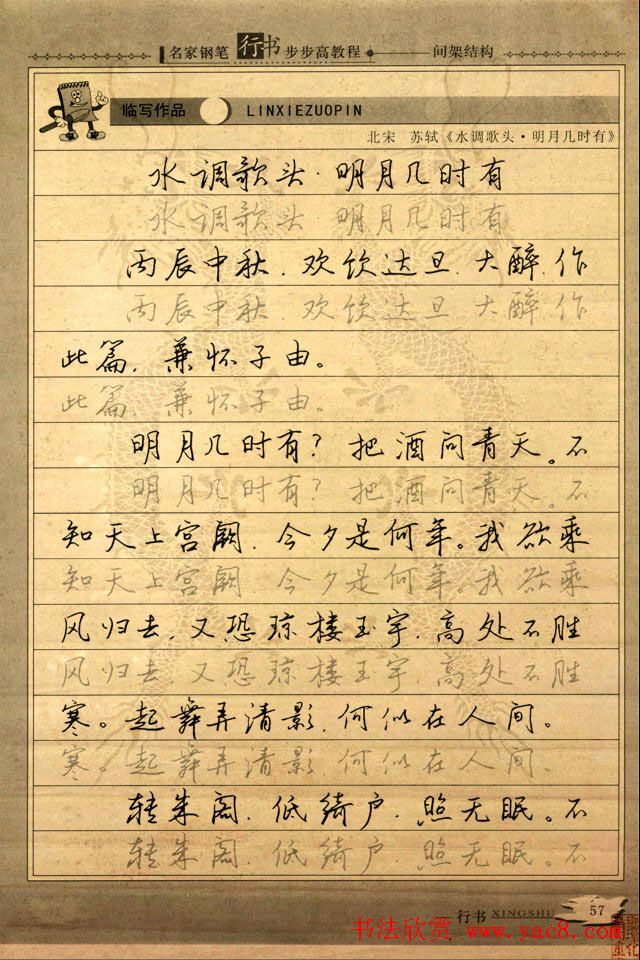 名家钢笔行书步步高教程 间架结构
临写作品 LINXIEZUOPIN
北宋 苏轼《水调歌头·明月几时有》
水调歌头·明月几时有
水调歌头·明月几时有
丙辰中秋,欢饮达旦,大醉,作
丙辰中秋,欢饮达旦,大醉,作
此篇,兼怀子由。
此篇,兼怀子由。
明月几时有?把酒问青天。不
明月几时有?把酒问青天。不
知天上宫阙,今夕是何年。我欲乘
知天上宫阙,今夕是何年。我欲乘
风归去,又恐琼楼玉宇,高处不胜
风归去,又恐琼楼玉宇,高处不胜
寒。起舞弄清影,何似在人间。
寒。起舞弄清影,何似在人间。
转朱阁,低绮户,照无眠。不
转朱阁,低绮户,照无眠。不
行书 XINGSHU 57
书法欣赏 www.yac8.com